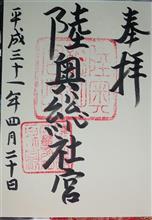 奉拝
陸奥總社宮
平成三十一年四月二十日